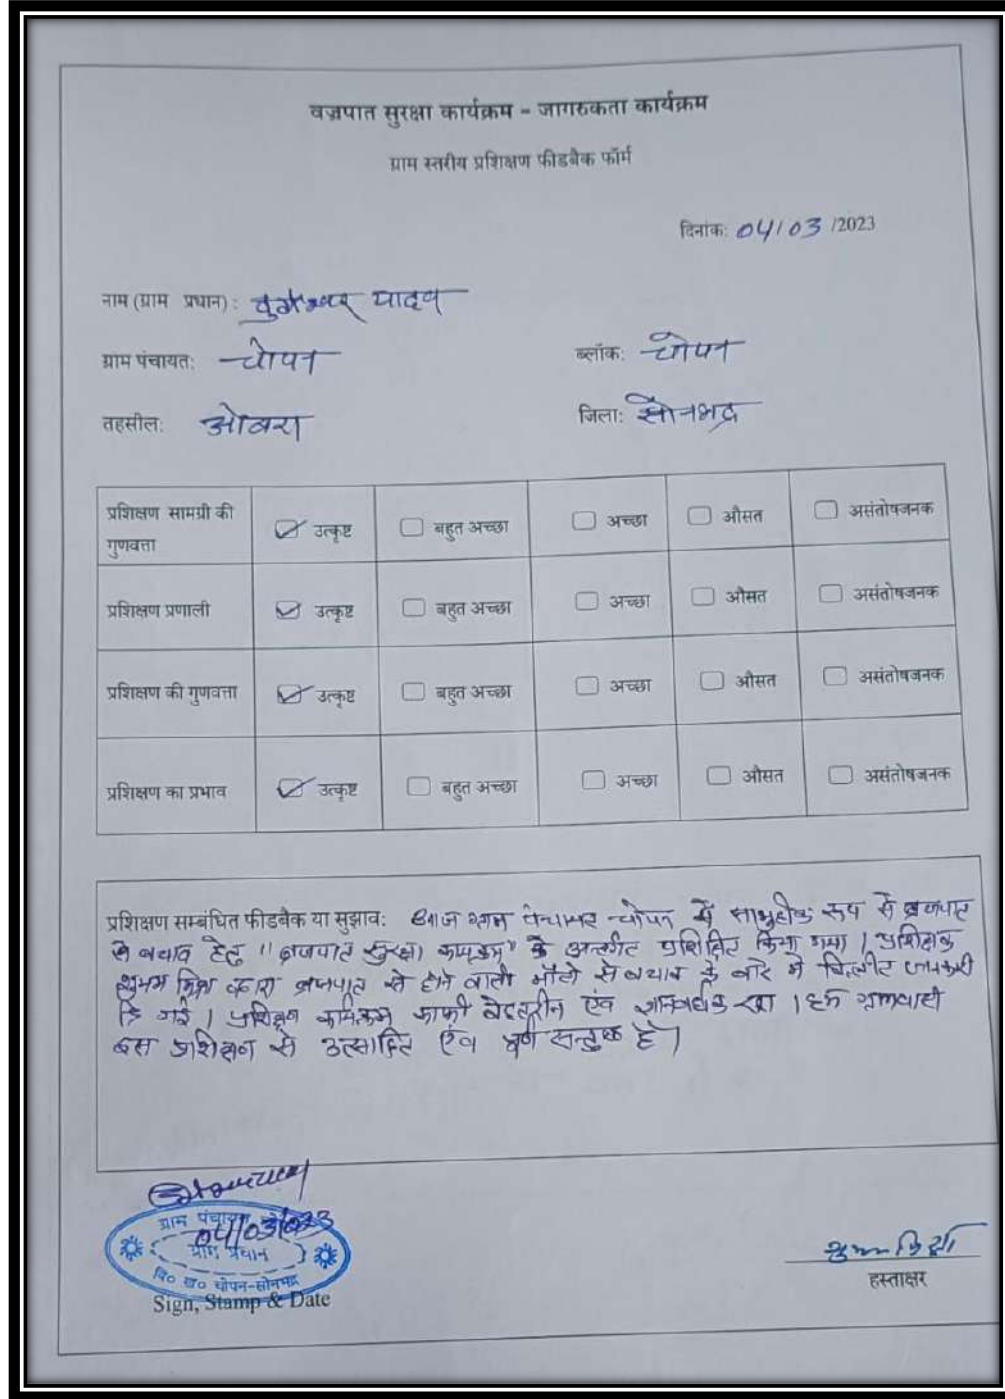 वज्रपात सुरक्षा कार्यक्रम - जागरुकता कार्यक्रम
ग्राम स्तरीय प्रशिक्षण फीडबैक फॉर्म
दिनांक: 04/03 /2023
नाम (ग्राम प्रधान): यादव
ग्राम पंचायत: चोपन ब्लॉक: चोपन
तहसील: ओबरा जिला: सोनभद्र
प्रशिक्षण सामग्री की गुणवत्ता उत्कृष्ट बहुत अच्छा अच्छा औसत असंतोषजनक
प्रशिक्षण प्रणाली उत्कृष्ट बहुत अच्छा अच्छा औसत असंतोषजनक
प्रशिक्षण की गुणवत्ता उत्कृष्ट बहुत अच्छा अच्छा औसत असंतोषजनक
प्रशिक्षण का प्रभाव उत्कृष्ट बहुत अच्छा अच्छा औसत असंतोषजनक
प्रशिक्षण सम्बंधित फीडबैक या सुझाव: आज ग्राम पंचायत चोपन में सामुहीक रूप से ब्रजपात
से बचाव हेतु "ब्रजपात सुरक्षा कार्यक्रम" के अन्तर्गत प्रशिक्षित किया गया। प्रशिक्षक
शुभम मिश्रा द्वारा ब्रजपात से होने वाली मौतो से बचाव के बारे में जानकारी
गई। प्रशिक्षण कार्यक्रम काफी बेहतरीन एंव ज्ञानवर्धक रहा। हम ग्रामवासी
इस प्रशिक्षण से उत्साहित एंव पूर्ण सन्तुष्ट है।
ग्राम पंचायत
04/03/2023
ग्राम प्रधान
वि० ख० चोपन-सोनभद्र
Sign, Stamp & Date
शुभम मिश्रा
हस्ताक्षर